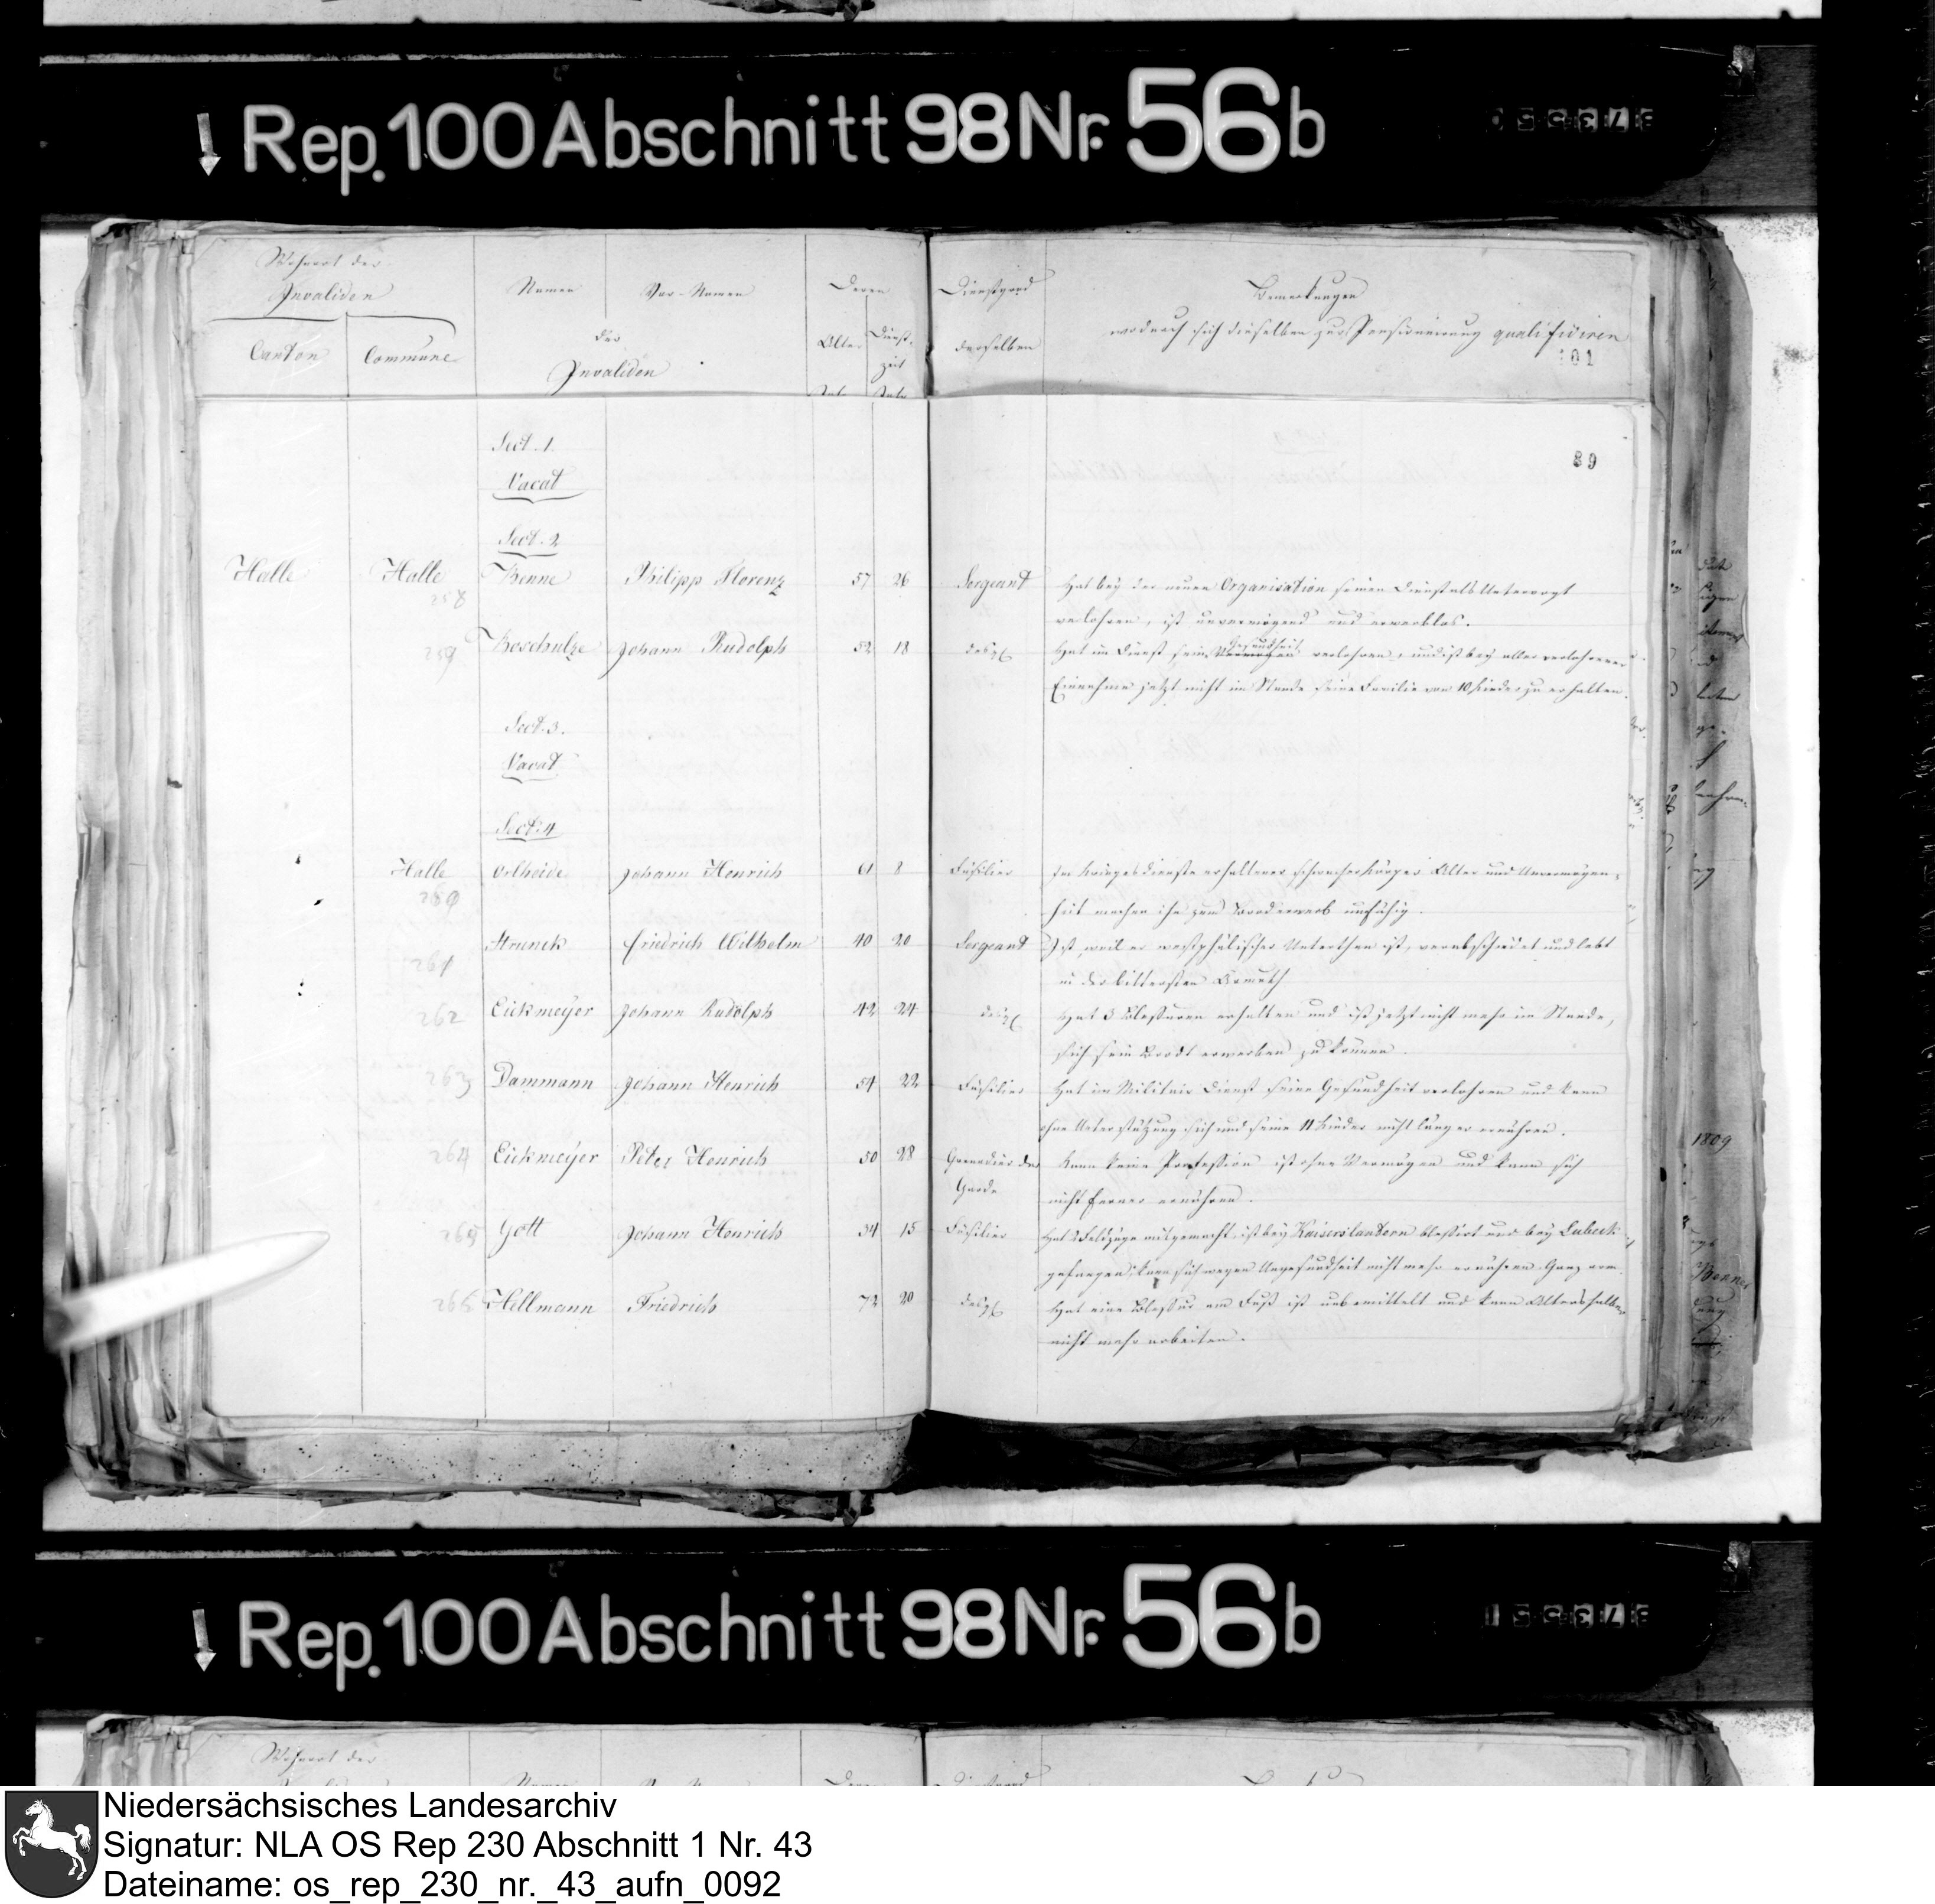 Rep. 100 Abschnitt 98 Nr. 56 b
Wohnort der
Invaliden
Canton Commune
Namen Vor-Namen
der
Invaliden
Deren
Alter Dienst-
zeit
Dienstgrad
derselben
Bemerkungen
wodurch sich dieselben zur Pensionierung qualificiren
101
89
Sect. 1.
Vacat
Sect. 2
Halle Halle Benne Philipp Florenz 57 26 Sergeant Hat bey der neuen Organisation seinen Dienst als Untervogt
258
verlohren, ist unvermögend und erwerblos.
259 Boschulze Johann Rudolph 52 18 desgl Hat im Dienst seine Vermögen Gesundheit verlohren, und ist bey aller verlohrener
Einnahme jetzt nicht im Stande seine Familie von 10 Kinder zu erhalten.
Sect. 3.
Vacat
Sect. 4
Halle Orlheide Johann Henrich 61 8 Füsilier Im Krieges dienste erhaltener schwacher Körper Alter und Unvermögen-
260
heit machen ihn zum Broderwerb unfähig.
Strunck Friedrich Wilhelm 40 20 Sergeant Ist, weil er westphälischer Unterthan ist, verabschiedet und lebt
261
in der bittersten Armuth
262 Eickmeyer Johann Rudolph 42 24 desgl Hat 3 Blessuren erhalten und ist jetzt nicht mehr im Stande,
sich sein Brodt erwerben zu können.
263 Dammann Johann Henrich 54 22 Füsilier Hat im Militair Dienst seine Gesundheit verlohren und kann
ohne Unterstützung sich und seine 11 Kinder nicht länger ernähren.
264 Eickmeyer Peter Henrich 50 28 Grenadier der Kann keine Profession ist ohne Vermögen und kann sich
Garde nicht ferner ernähren.
265 Gott Johann Henrich 34 15 Füsilier Hat 2 Feldzüge mitgemacht, ist bey Kaiserslautern blessirt und bey Lubeck
gefangen, kann sich wegen Ungesundheit nicht mehr ernähren Ganz arm.
266 Hellmann Friedrich 72 20 desgl Hat eine Blessur am Fuß ist unbemittelt und kann Altershalber
nicht mehr arbeiten.
1809
Rep. 100 Abschnitt 98 Nr. 56 b
Wohnort der
Niedersächsisches Landesarchiv
Signatur: NLA OS Rep 230 Abschnitt 1 Nr. 43
Dateiname: os_rep_230_nr._43_aufn_0092